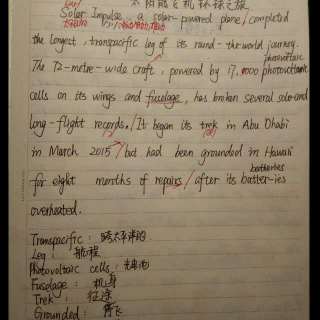 太阳能飞机环球之旅
Solar Impulse, a solar-powered plane / completed
the longest, transpacific leg of its round-the-world journey.
photovoltaic
The 72-metre-wide craft, powered by 17,000 photovoltaic
cells on its wings and fuselage, has broken several solo-and
long-flight records. / It began its trek in Abu Dhabi
in March 2015 / but had been grounded in Hawaii
batteries
for eight months of repairs / after its batter-ies
overheated.
Transpacific: 跨太平洋的
Leg: 航程
Photovoltaic cells: 光电池
Fuselage: 机身
Trek: 征途
Grounded: 停飞